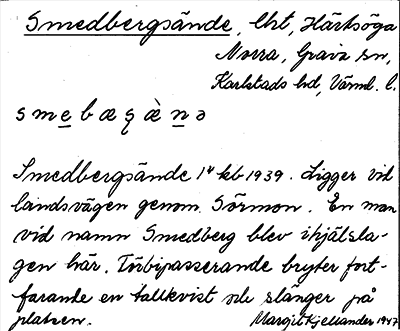 Smedbergsände, lht, Härtsöga
Norra, Grava sn,
Karlstads hd, Värml. l.
sme̲bæşæ̀n̲ə
Smedbergsände 1" kb 1939. Ligger vid
landsvägen genom Sörmon. En man
vid namn Smedberg blev ihjälsla-
gen här. Förbipasserande bryter fort-
farande en tallkvist och slänger på
platsen. Margit Kjellander 1947